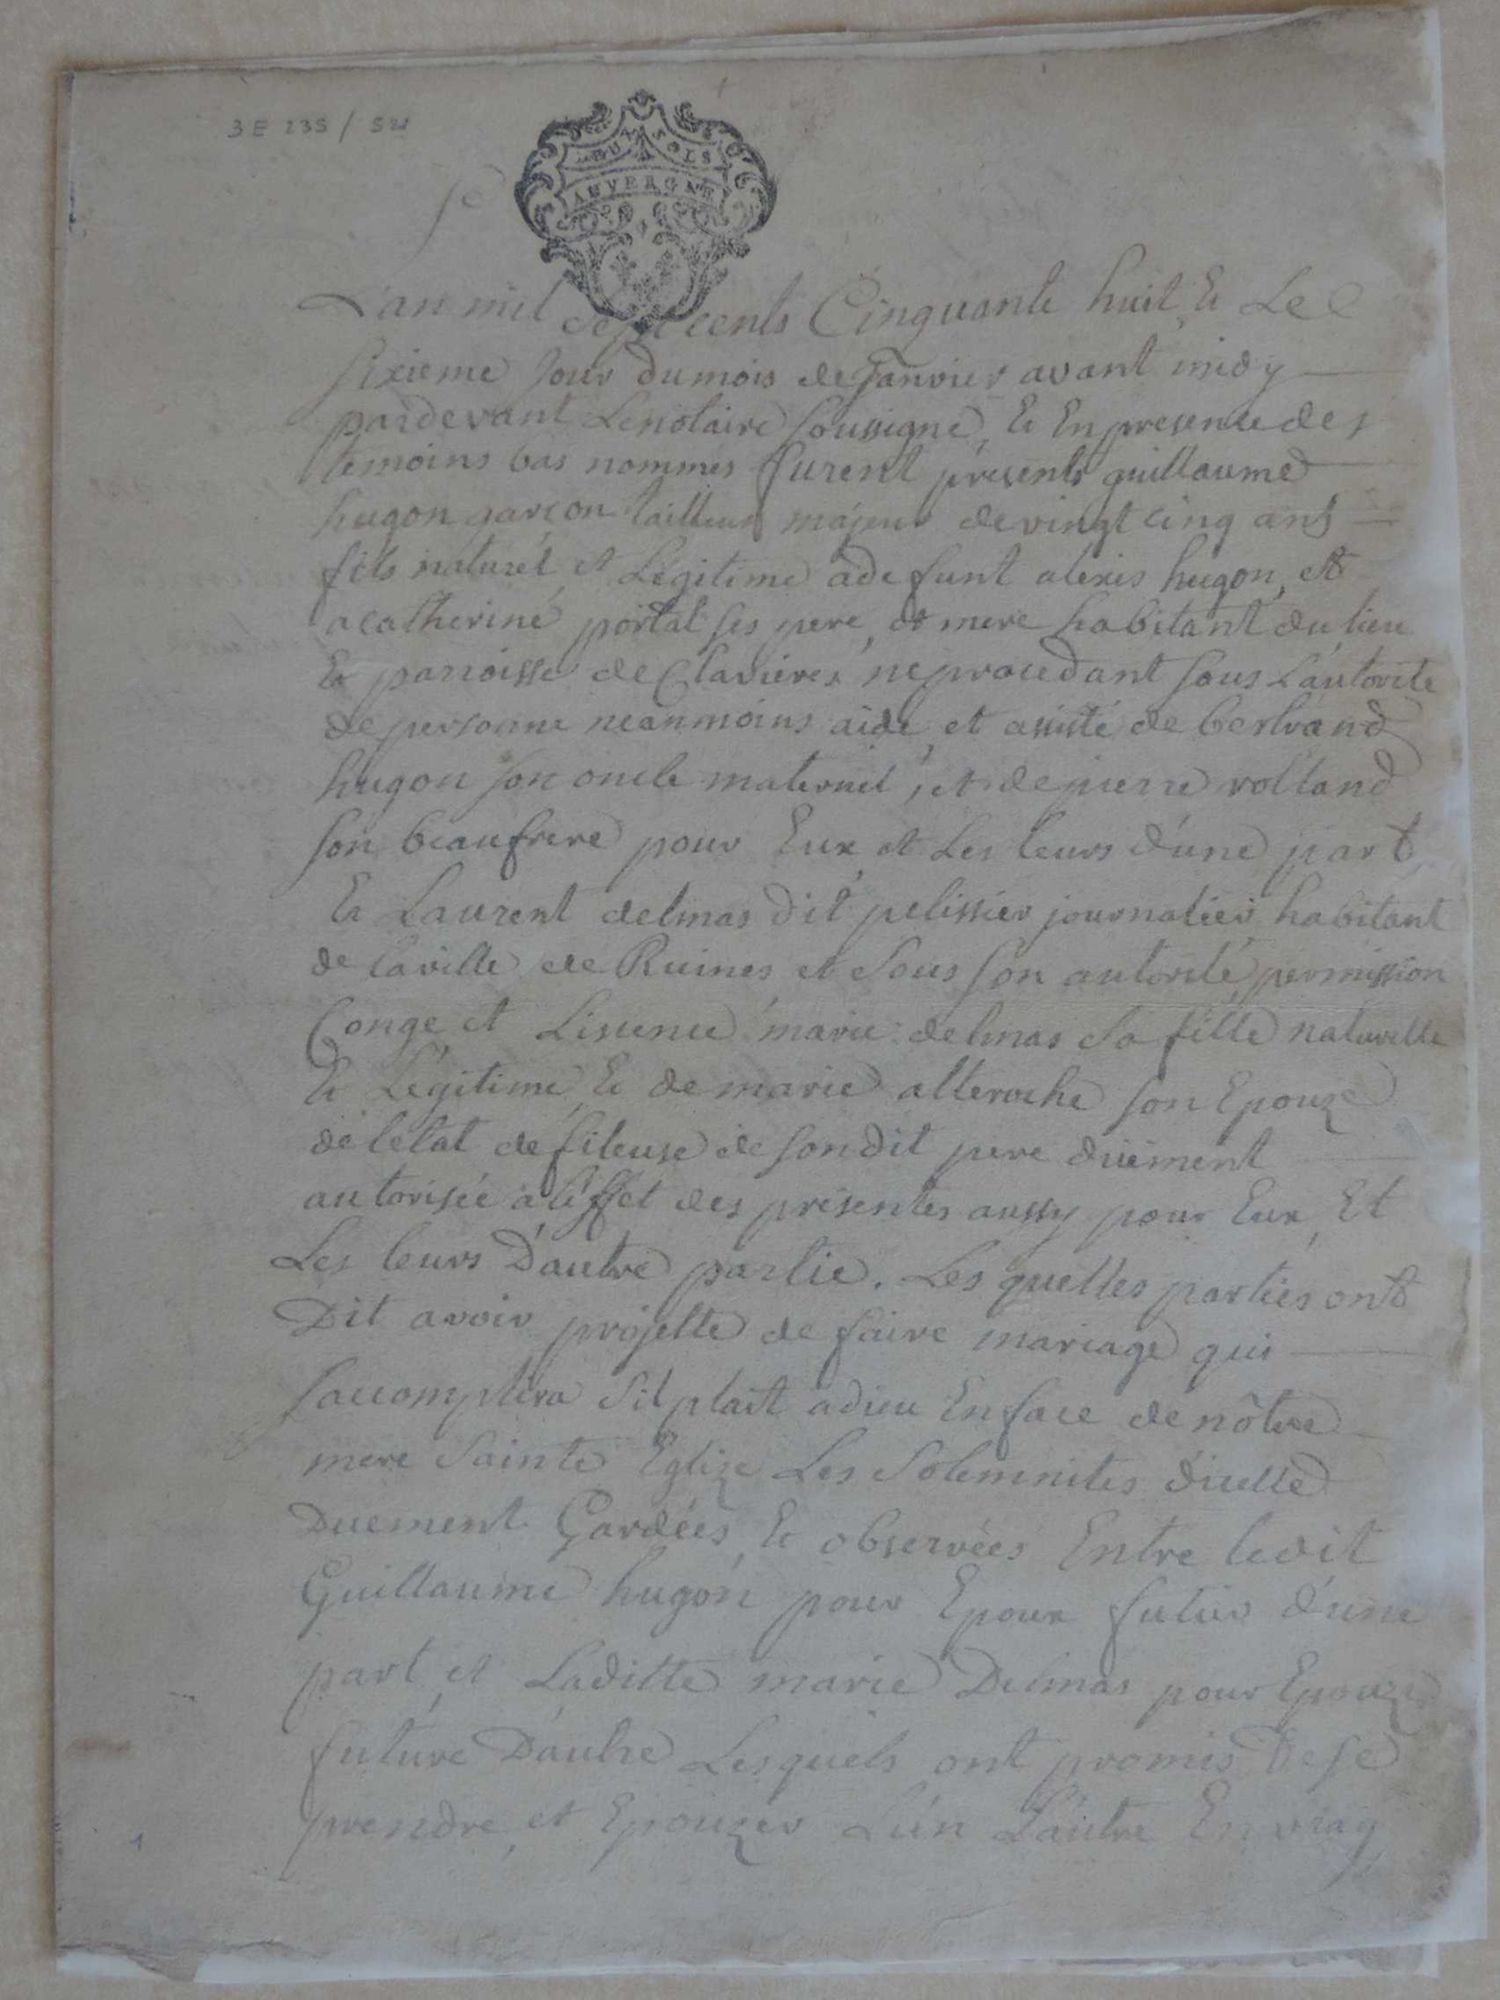 3 E 235 / 521
DEUX SOLS
AUVERGNE
L'an mil sept cents Cinquante huit Et Le
sixieme Jour du mois de Janvier avant midy
pardevant Le notaire soussigné, Et En presence des
temoins bas nommés furent présents guillaume
hugon garçon tailleur majeur de vingt cinq ans
fils naturel et Légitime a defunt alexis hugon, et
a catherine portal ses pere, et mere habitant du lieu
Et parroisse de Clavieres, ne procedant sous L'autorite
de personne neanmoins aidé, et assisté de bertrand
hugon son oncle maternel, et de pierre rolland
son beaufrere pour Eux, et Les leurs d'une part
Et Laurent delmas dit pelissier journalier habitant
de la ville de Ruines et sous son autorité, permission
Congé, et Lissence marie delmas sa fille naturelle
Et Légitime, Et de marie alteroche son Epouze
de letat de fileuse de sondit pere düement
autorisée a l'éffet des présentes aussy pour Eux, Et
Les leurs D'autre partie. Les quelles parties ont
Dit avoir projetté de faire mariage qui
saccomplira sil plait a dieu En face de nôtre
mere Sainte Eglize Les Solemnites d'icelle
Duement Gardées, Et observées Entre ledit
Guillaume hugon pour Epoux futur d'une
part, et Laditte marie Delmas pour Epouze
future D'autre Lesquels ont promis De se
prendre, et Epouzer L'un L'autre En vray
1